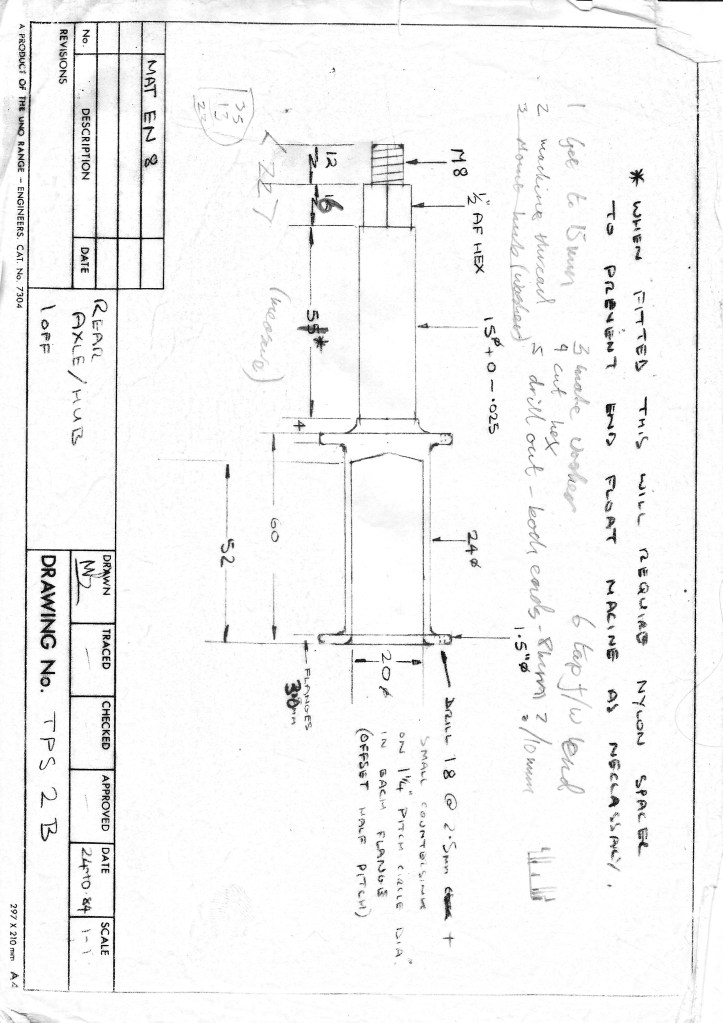 * WHEN FITTED THIS WILL REQUIRE NYLON SPACER
TO PREVENT END FLOAT MACINE AS NECLASSARY.
1 Get to 15mm
2 machine thread
3 make washer
4 cut hex
5 drill out - both ends - 8mm 2/10mm
6 tap f/w end
M8
½" AF HEX
15ø +0 -.025
24ø
1.5"ø
DRILL 18 @ 2.5mm +
SMALL COUNTERSINK
ON 1¼" PITCH CIRCLE DIA.
IN EACH FLANGE
(OFFSET HALF PITCH)
12
16
55*
4
20ø
FLANGES
3.0mm
60
52
22
(measure)
35
13
22
MAT EN 8
No.
DESCRIPTION
DATE
REVISIONS
REAR
AXLE/HUB
1 OFF
DRAWN
TRACED
CHECKED
APPROVED
DATE
SCALE
—
—
24.10.84
1-1
DRAWING No. TPS 2 B
A PRODUCT OF THE UNO RANGE - ENGINEERS. CAT. No. 7304
297 X 210 mm A4